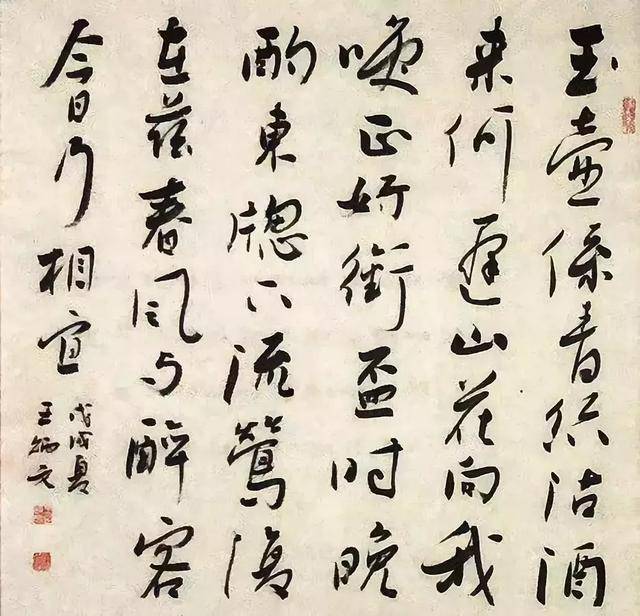 玉壺係青絲沽酒
来何遲山花向我
咲正好銜盃时晚
酌東牕下流鶯復
在茲春風与醉客
今日乃相宜
戊戌夏
王炳文